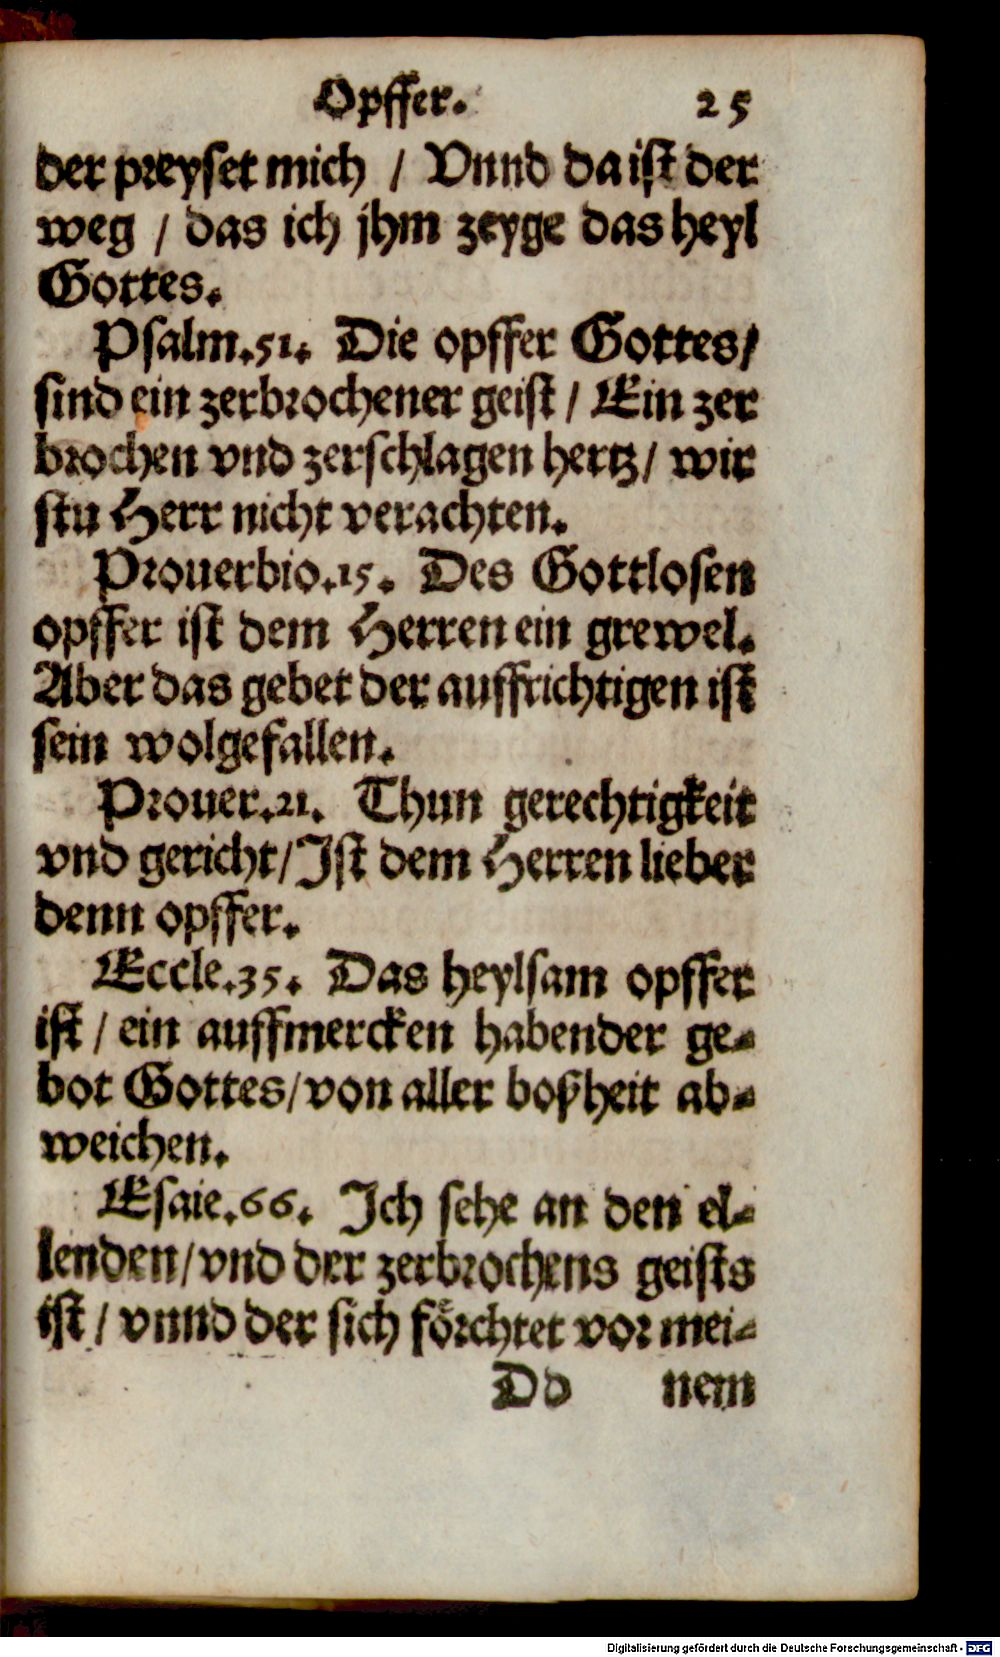 Opffer. 25
der preyset mich / Vnnd da ist der
weg / das ich jhm zeyge das heyl
Gottes.
Psalm.51. Die opffer Gottes/
sind ein zerbrochener geist / Ein zer
brochen vnd zerschlagen hertz/ wir
stu Herr nicht verachten.
Prouerbio.15. Des Gottlosen
opffer ist dem Herren ein grewel.
Aber das gebet der auffrichtigen ist
sein wolgefallen.
Prouer.21. Thun gerechtigkeit
vnd gericht/ Ist dem Herren lieber
denn opffer.
Eccle.35. Das heylsam opffer
ist / ein auffmercken habender ge-
bot Gottes/von aller boßheit ab-
weichen.
Esaie.66. Ich sehe an den el-
lenden/vnd der zerbrochens geists
ist / vnnd der sich förchtet vor mei-
Dd nem
Digitalisierung gefördert durch die Deutsche Forschungsgemeinschaft - DFG